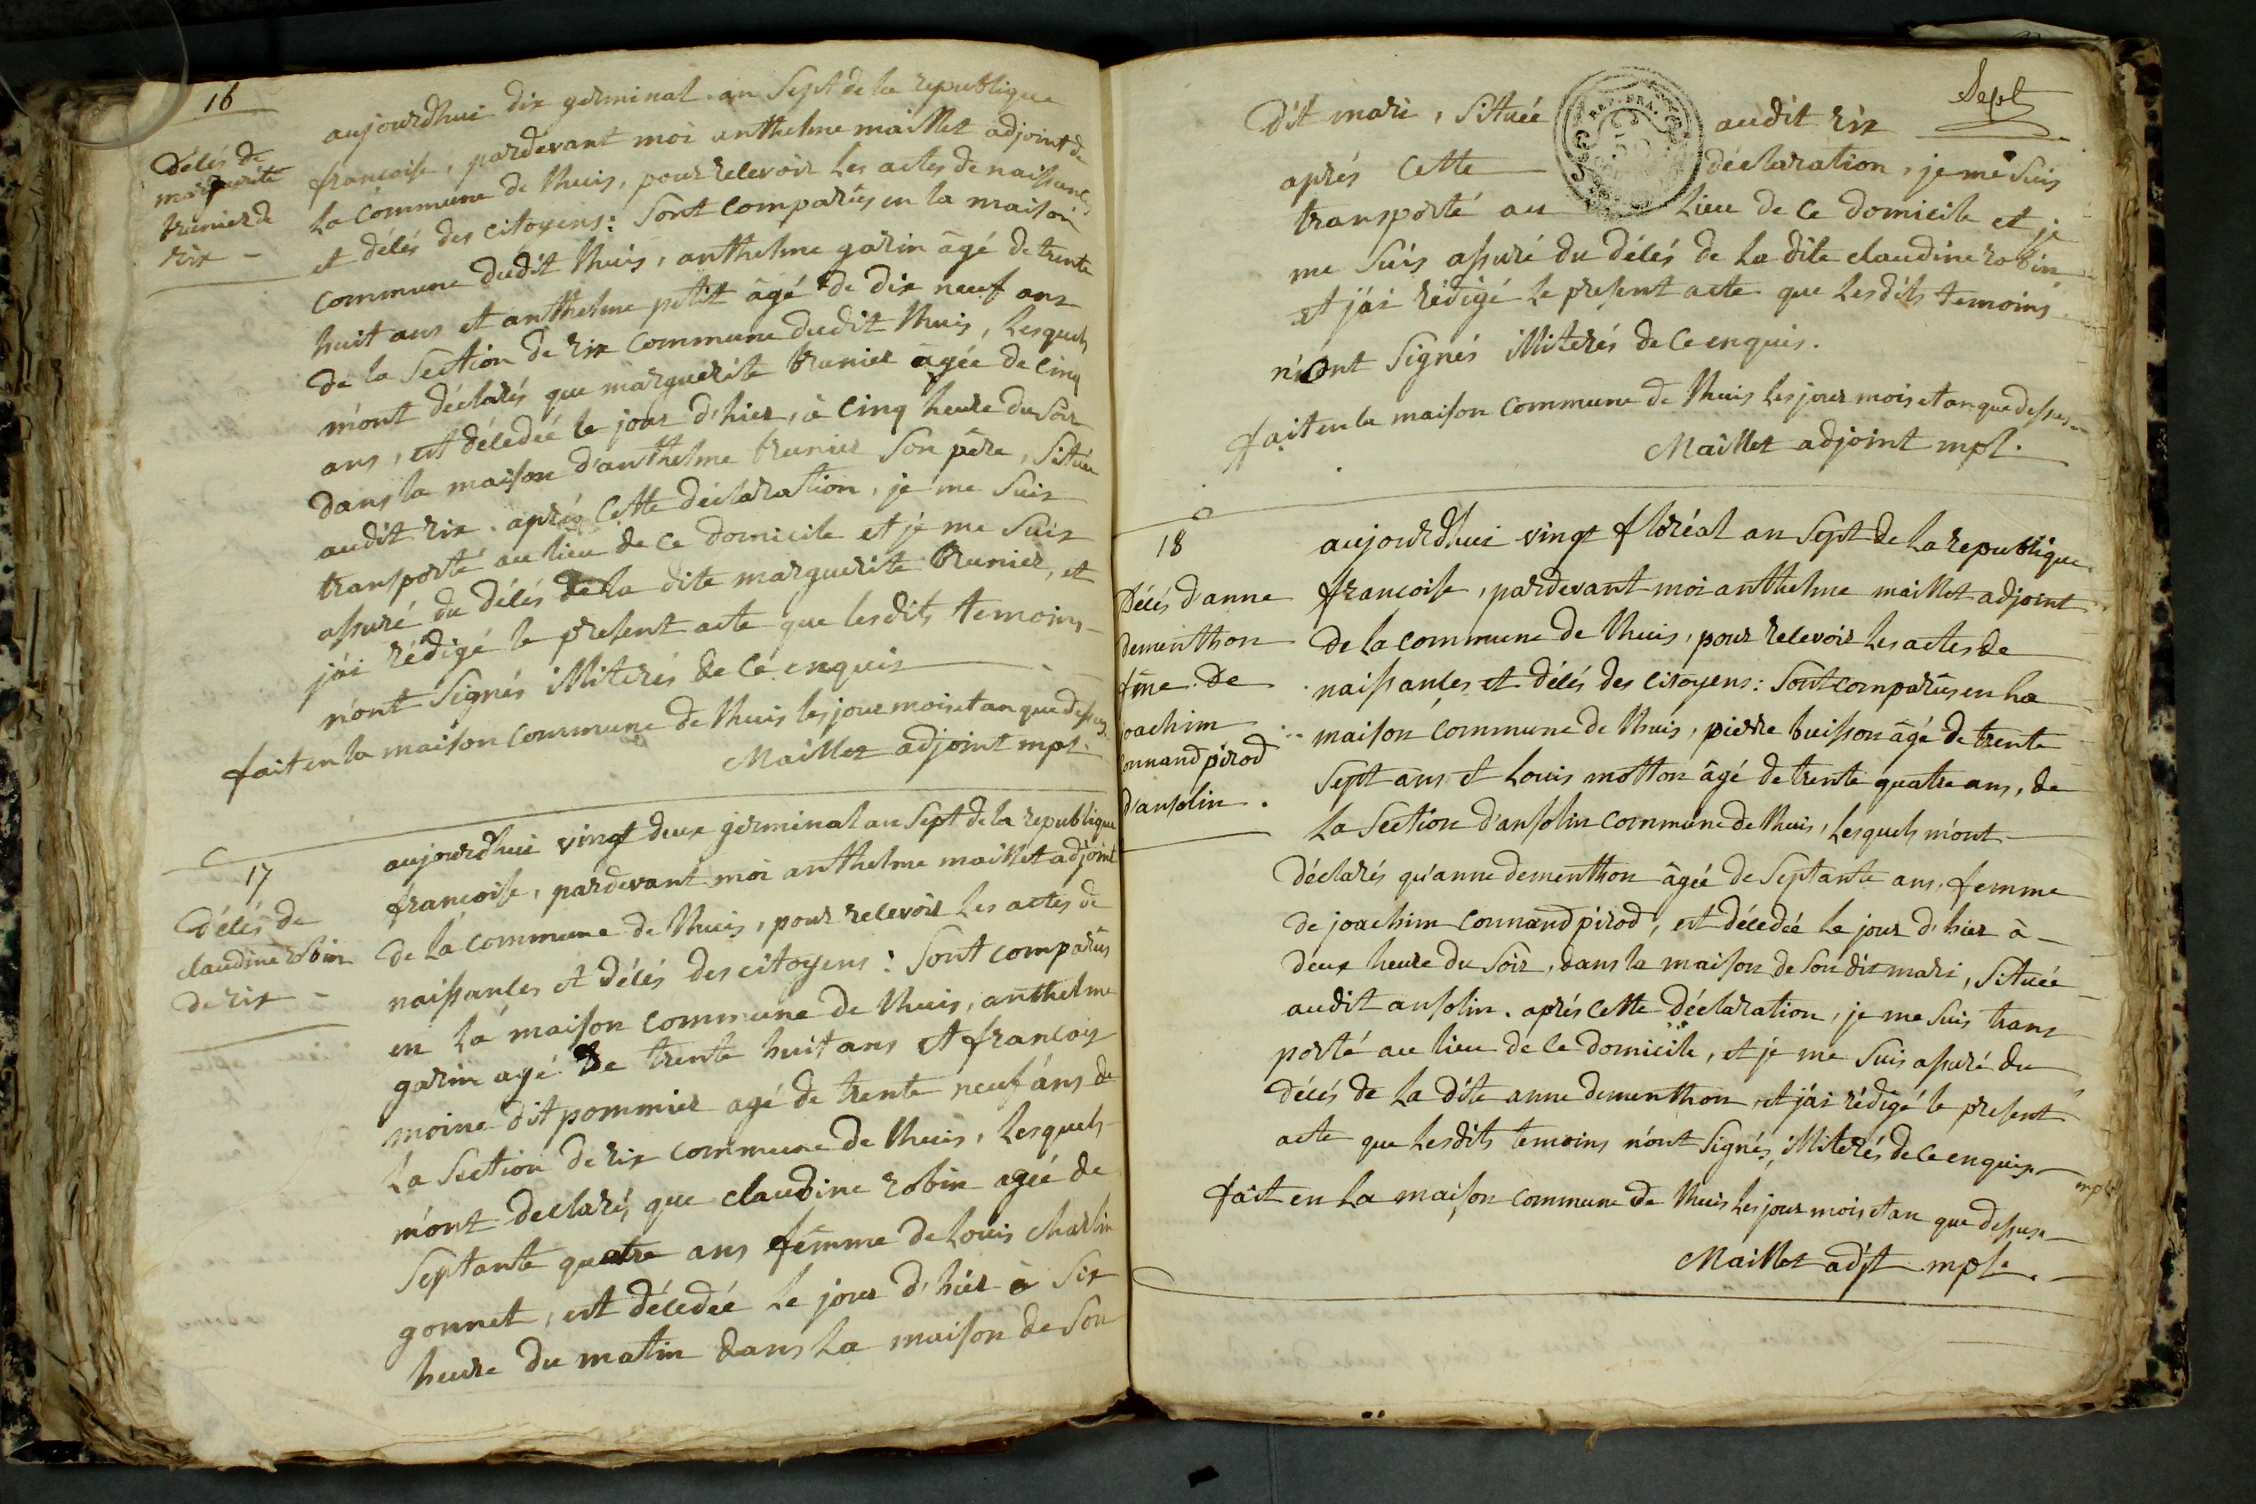 16
Décés de
marguerite
trunier de
rix
aujourdhui dix germinal an Sept de la republique
francoise, pardevant moi anthelme maillet adjoint de
la commune de thuis, pour recevoir les actes de naissances
et décés des citoyens: Sont comparûs en la maison
commune dudit thuis, anthelme garin âgé de trente
huit ans et anthelme petit âgé de dix neuf ans
de la Section de rix commune dudit thuis, lesquels
m'ont déclarés que marguerite trunier âgée de cinq
ans, est décedée le jour d'hier, à cinq heure du soir
dans la maison d'anthelme trunier Son pére, Située
audit rix. aprés cette déclaration, je me Suis
transporté au lieu de ce domicile et je me Suis
assuré du décés de la dite marguerite trunier, et
j'ai rédigé le present acte que lesdits temoins
n'ont Signés illiterés de ce enquis
fait en la maison commune de thuis les jour mois et an que dessus.
Maillet adjoint mpl.
17
Décés de
claudine robin
de rix
aujourdhui vingt deux germinal an Sept de la republique
francoise, pardevant moi anthelme maillet adjoint
de la commune de thuis, pour recevoir les actes de
naissances et décés des citoyens: Sont comparûs
en la maison commune de thuis, anthelme
garin agé de trente huit ans et francois
moine dit pommier agé de trente neuf ans de
la Section de rix commune de thuis, lesquels
m'ont declarés que claudine robin agée de
Septante quatre ans femme de Louis charlin
gonnet, est décedée le jour d'hier à Six
heure du matin dans la maison de Son
Sept
Dit mari, Située audit rix
aprés cette déclaration, je me Suis
transporté au lieu de ce domicile et je
me Suis assuré du décés de la dite claudine robin
et j'ai rédigé le present acte que lesdits temoins
n'ont Signés illiterés de ce enquis.
fait en la maison commune de thuis les jour mois et an que dessus
Maillet adjoint mpl.
18
Décés d'anne
dementhon
fme de
joachim
connand pirod
d'ansolin.
aujourdhui vingt floréal an Sept de la republique
francoise, pardevant moi anthelme maillet adjoint
de la commune de thuis, pour recevoir les actes de
naissances et décés des citoyens: Sont comparûs en la
maison commune de thuis, pierre buisson âgé de trente
Sept ans et Louis motton âgé de trente quatre ans, de
la Section d'ansolin commune de thuis, lesquels m'ont
déclarés qu'anne dementhon âgée de Septante ans, femme
de joachim connand pirod, est décedée le jour d'hier à
deux heure du Soir, dans la maison de Son dit mari, Située
audit ansolin. aprés cette déclaration, je me Suis trans
porté au lieu de ce domicile, et je me Suis assuré du
décés de la dite anne dementhon, et j'ai rédigé le present
acte que lesdits temoins n'ont Signés, illiterés de ce enquis
fait en la maison commune de thuis les jour mois et an que dessus
Maillet adjt mpl.